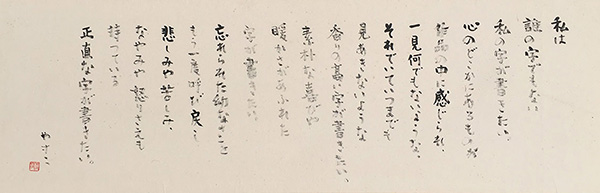 私は
誰の字でもない
私の字が書きたい。
心のどこかに在るものが
作品の中に感じられ、
一見何でもないような、
それでいていつまでも
見あきないような
香りの高い字が書きたい、
素朴な喜びや
暖かさがあふれた
字が書きたい。
忘れられた幼なきことを
もう一度呼び戻し
悲しみや苦しみ、
なやみや怒りさえも
持っている
正直な字が書きたい。
やすこ